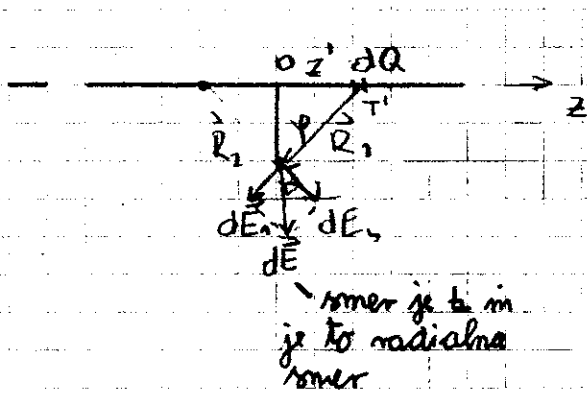 0 z' dQ
T'
z
R⃗₂ R⃗₁
dE⃗₁ dE⃗₂
dE⃗
smer je ta in
je to radialna
smer